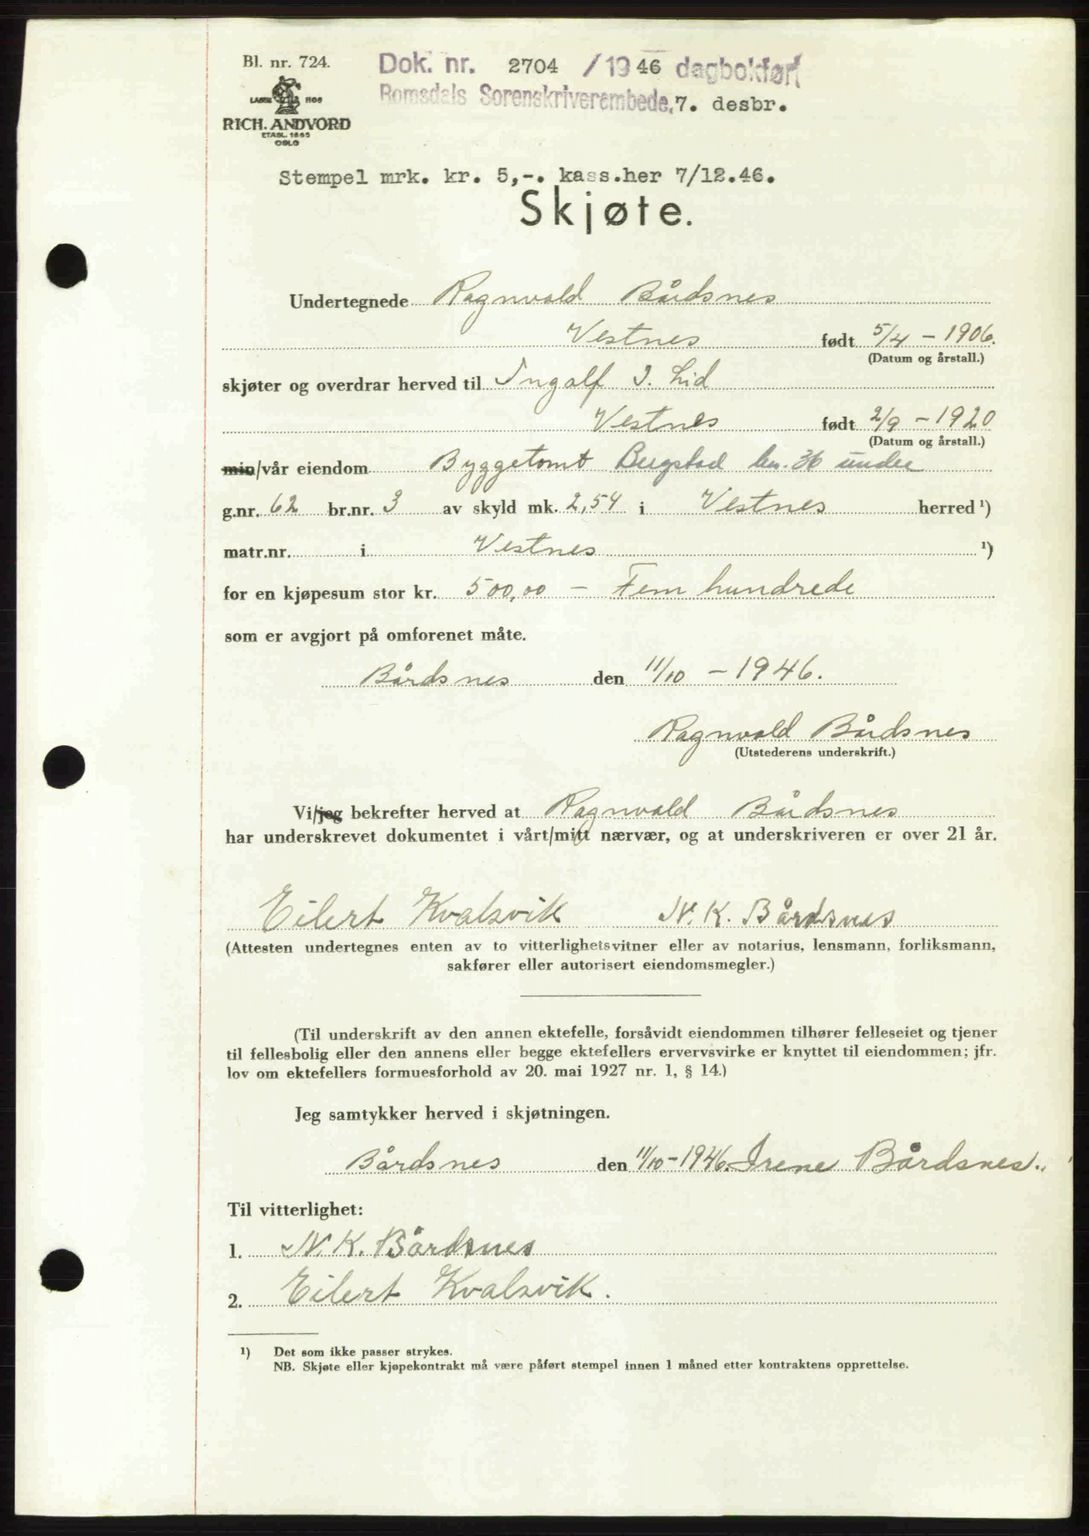 Bl. nr. 724.
Dok. nr. 2704 /19 46 dagbokført
Romsdals Sorenskriverembede, 7. desbr.
LAGER HOS
RICH. ANDVORD
ETABL. 1865
OSLO
Stempel mrk. kr. 5,-. kass.her 7/12.46.
Skjøte.
Undertegnede Ragnvald Bårdsnes
Vestnes født 5/4 - 1906.
(Datum og årstall.)
skjøter og overdrar herved til Ingolf I. Lid
Vestnes født 2/9 - 1920
(Datum og årstall.)
min/vår eiendom Byggetomt Bergstad bn. 36 under
g.nr. 62 br.nr. 3 av skyld mk. 2,54 i Vestnes herred ¹)
matr.nr. i Vestnes ¹)
for en kjøpesum stor kr. 500,00 - Fem hundrede
som er avgjort på omforenet måte.
Bårdsnes den 11/10 - 1946.
Ragnvald Bårdsnes
(Utstederens underskrift.)
Vi/jeg bekrefter herved at Ragnvald Bårdsnes
har underskrevet dokumentet i vårt/mitt nærvær, og at underskriveren er over 21 år.
Eilert Kvalsvik N. K. Bårdsnes
(Attesten undertegnes enten av to vitterlighetsvitner eller av notarius, lensmann, forliksmann,
sakfører eller autorisert eiendomsmegler.)
(Til underskrift av den annen ektefelle, forsåvidt eiendommen tilhører felleseiet og tjener
til fellesbolig eller den annens eller begge ektefellers ervervsvirke er knyttet til eiendommen; jfr.
lov om ektefellers formuesforhold av 20. mai 1927 nr. 1, § 14.)
Jeg samtykker herved i skjøtningen.
Bårdsnes den 11/10 - 1946. Irene Bårdsnes.
Til vitterlighet:
1. N. K. Bårdsnes
2. Eilert Kvalsvik.
¹) Det som ikke passer strykes.
NB. Skjøte eller kjøpekontrakt må være påført stempel innen 1 måned etter kontraktens opprettelse.